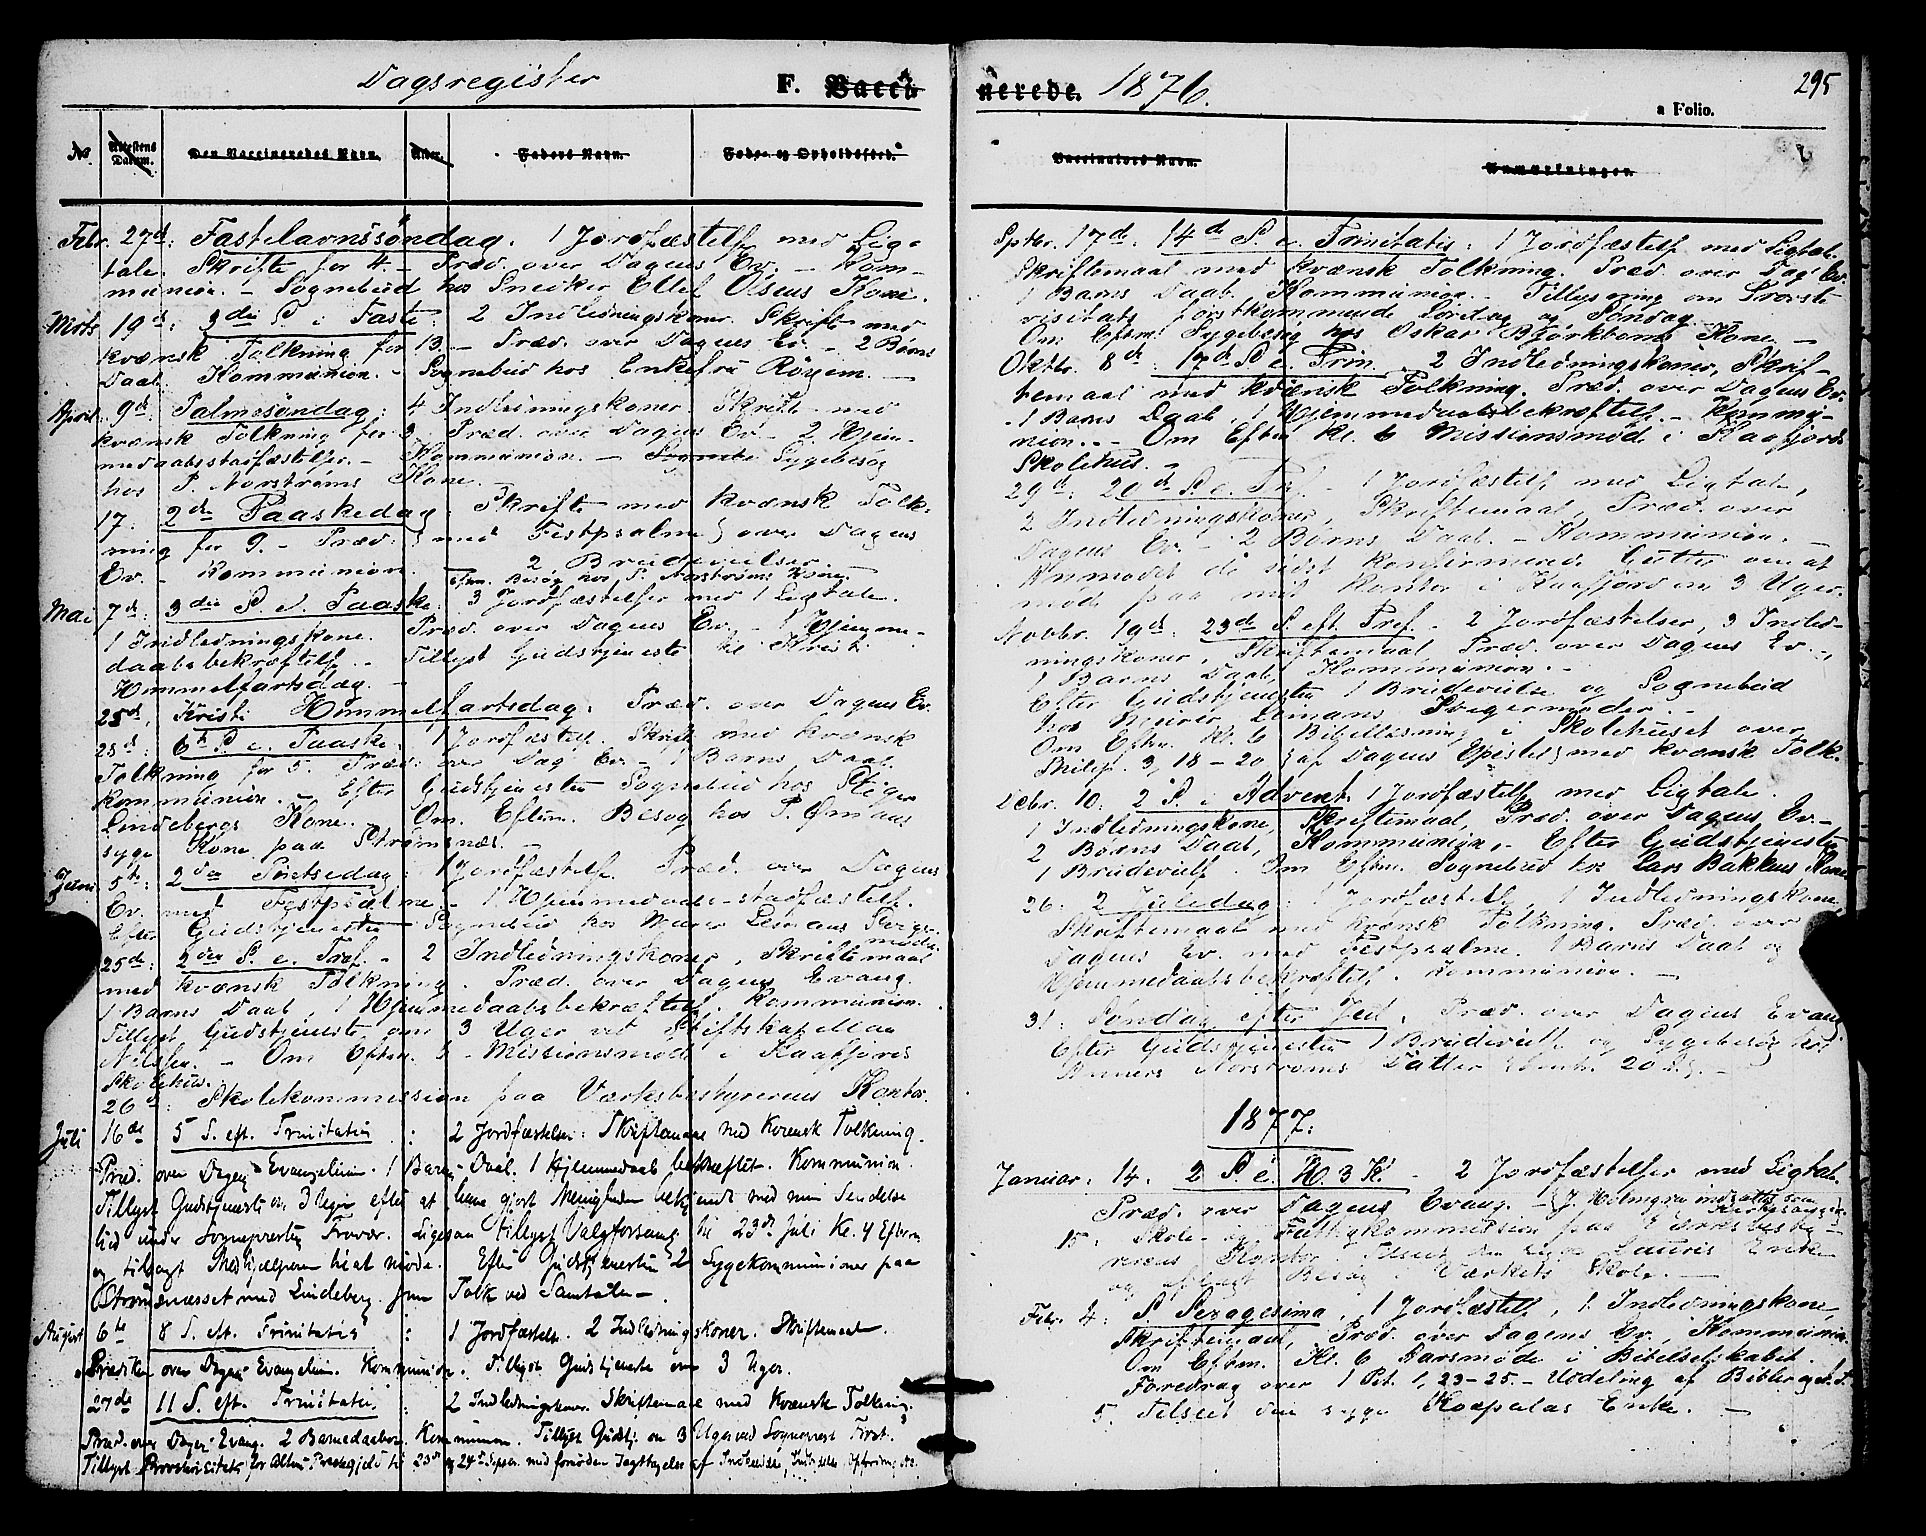 Dagsregister F. Vacci-
No Attestens Datum. Den Vaccineredes Navn. Alder. Faders Navn. Føde- og Opholdssted.
Febr. 27de: Fastelavnssöndag. 1 Jordfæstelse med Lig-
tale. Skrifte for 4. – Præd. over Dagens Ev. – Kom-
munion. – Sognebud hos Snedker Ellef Olsens Kone.
Mrts 19de: 3die S. i Faste: 2 Indledningskoner. Skrifte med
kvænsk Tolkning for 13. – Præd. over Dagens Ev. – 2 Børns
Daab. Kommunion. – Sognebud hos Enkefru Röyem. –
April 9de: Palmesöndag: 4 Indledningskoner. Skrifte med
kvænsk Tolkning for 3. Præd. over Dagens Ev. – 2 Hjem-
medaabsstadfæstelser. – Kommunion. – Sygebesøg
hos P. Norströms Kone. –
17. 2den Paaskedag. Skrifte med kvænsk Tolk-
ning for 9. – Præd. (med Festpsalme) over Dagens
Ev. – Kommunion. 2 Brudevielser.
Eftm. Besög hos P. Norströms Kone. –
Mai 7de: 3die S. e. Paaske: 3 Jordfæstelser med 1 Ligtale.
1 Indledningskone. Præd. over Dagens Ev. – 1 Hjemme-
daabsbekræftelse. – Tillyst Gudstjeneste til Kristi
Himmelfartsdag. –
25de, Kristi Himmelfartsdag: Præd. over Dagens Ev.
28de: 6te S. e. Paaske: 1 Jordfæstelse. Skrifte med kvænsk
Tolkning for 5. Præd. over Dag. Ev. – 1 Barns Daab.
Kommunion. – Efter Gudstjenesten Sognebud hos Stiger
Lindebergs Kone. Om Eftm. Besög hos P. Ømans
syge Kone paa Strömsnæs. –
Juni 5te: 2den Pintsedag: 1 Jordfæstelse. Præd. over Dagens
Ev. med Festpsalme. – 1 Hjemmedaabs-stadfæstelse.
Efter Gudstjenesten Sognebud hos Lemans Sviger-
moder.
25de: 2den S. e. Tref. – 2 Indledningskoner, Skriftemaal
med kvænsk Tolkning. Præd. over Dagens Evang.
1 Barns Daab, 1 Hjemmedaabsbekræftelse. Kommunion.
Tillyst Gudstjeneste om 3 Uger ved Stiftskapellan
Nilsen. – Om Eftm. 5 – Missionsmøde i Kaafjords
Skolehus.
26de: Skolekommission paa Værksbestyrerens Kontor.
Juli 16de 5 S. eft. Trinitatis: 2 Jordfæstelser. Skriftemaal med Kvænsk Tolkning.
Præd. over Dagens Evangelium. 1 Barns Daab. 1 Hjemmedaab bekræftet. Kommunion.
Tillyst Gudstjeneste om 3 Uger efter at have gjort Menigheden bekjendt med min Sendelse
hid under Sogneprestens Fravær. Ligesaa tillyst Valgforsaml. til 23de Juli Kl. 4 Efterm.
og tilsagt Medhjælperen til at møde. Efter Gudstjenesten 2 Sygekommunioner paa
Strømsnæsset med Lindeberg som Tolk ved Samtalen –
August 6te 8 S. eft. Trinitatis: 1 Jordfæstelse. 2 Indledningskoner. Skriftemaal.
Prædiken over Dagens Evangelium. Kommunion. Tillyst Gudstjeneste om 3 Uger.
27de 11 S. eft. Trinitatis: 2 Indledningskoner. Skriftemaal med Kvænsk Tolkning.
Præd. over Dagens Evang. 2 Barnedaaber. Kommunion. Tillyst Gudstj. om 3 Uger ved Sogneprest
Tillyst Provstevisitats for Altens Præstegjeld til 23de og 24de Septbr. med fornøden Iagttagelse af

nerede. 1876. 295
a Folio.
Vaccinators Navn. Anmærkninger.
Septbr. 17de. 14de S. e. Trinitatis: 1 Jordfæstelse med Ligtale.
Skriftemaal med kvænsk Tolkning. Præd. over Dags Ev.
1 Barns Daab. Kommunion. – Tillysning om Provste-
visitats förstkommende Lördag og Söndag.
Om Eftm. Sygebesög hos Oskar Björkboms Kone. –
Oktbr. 8de: 17de S. e. Trin. 2 Indledningskoner, Skrif-
temaal med kvænsk Tolkning. Præd. over Dagens Ev.
– 1 Barns Daab, 1 Hjemmedaabsbekræftelse. – Kommu-
nion. – Om Eftm. Kl. 6 Missionsmøde i Kaafjords
Skolehus. –
29de: 20de S. e. Tref. – 1 Jordfæstelse med Ligtale,
2 Indledningskoner, Skriftemaal, Præd. over
Dagens Ev. – 2 Börns Daab. – Kommunion. –
Anmodet de sidst konfirmerede Gutter om at
møde paa mit Kontor i Kaafjord om 3 Uger.
Novbr. 19de: 23de S. eft. Tref. – 2 Jordfæstelser, 3 Indled-
ningskoner, Skriftemaal. Præd. over Dagens Ev. –,
1 Barns Daab, Kommunion. –
Efter Gudstjenesten 1 Brudevielse og Sognebud
hos Lemans Svigermoder. –
Om Eftm. Kl. 6 Bibellæsning i Skolehuset over
Philip. 3, 18–20 (af Dagens Epistel) med kvænsk Tolk.
Decbr. 10: 2 S. i Advent: 1 Jordfæstelse med Ligtale.
1 Indledningskone, Skriftemaal, Præd. over Dagens Ev. –
2 Børns Daab, Kommunion. – Efter Gudstjenesten
1 Brudevielse. Om Eftm. Sognebud hos Lars Bakkens Kone.
26: 2 Juledag: 1 Jordfæstelse, 1 Indledningskone,
Skriftemaal med kvænsk Tolkning. Præd. over
Dagens Ev. med Festpsalme. 1 Barns Daab og
Hjemmedaabsbekræftelse. Kommunion. –
31: Söndag efter Jul. Præd. over Dagens Evang.
Efter Gudstjenesten 1 Brudevielse og Sygebesög hos
Norströms Datter 20
1877:
Januar: 14. 2 S. e. H. 3 K. – 2 Jordfæstelser med Ligtale.
Præd. over Dagens Evang. – (J. Holmgren indsattes som
Kirkesanger)
15: Skole- og Fattigkommission paa Værksbesty-
rerens Kontor. Tilseet den syge Lauris Enke
og aflagt Besög i Værkets Skole. –
Febr. 4: S. Sexagesima, 1 Jordfæstelse, 1 Indledningskone,
Skriftemaal, Præd. over Dagens Ev., Kommunion.
Om Eftm. Kl. 6 Aarsmøde i Bibelselskabet.
Foredrag over 1 Pet. 1, 23–25. – Uddeling af Bibler og N. T.
5. Tilseet den syge Enke. –